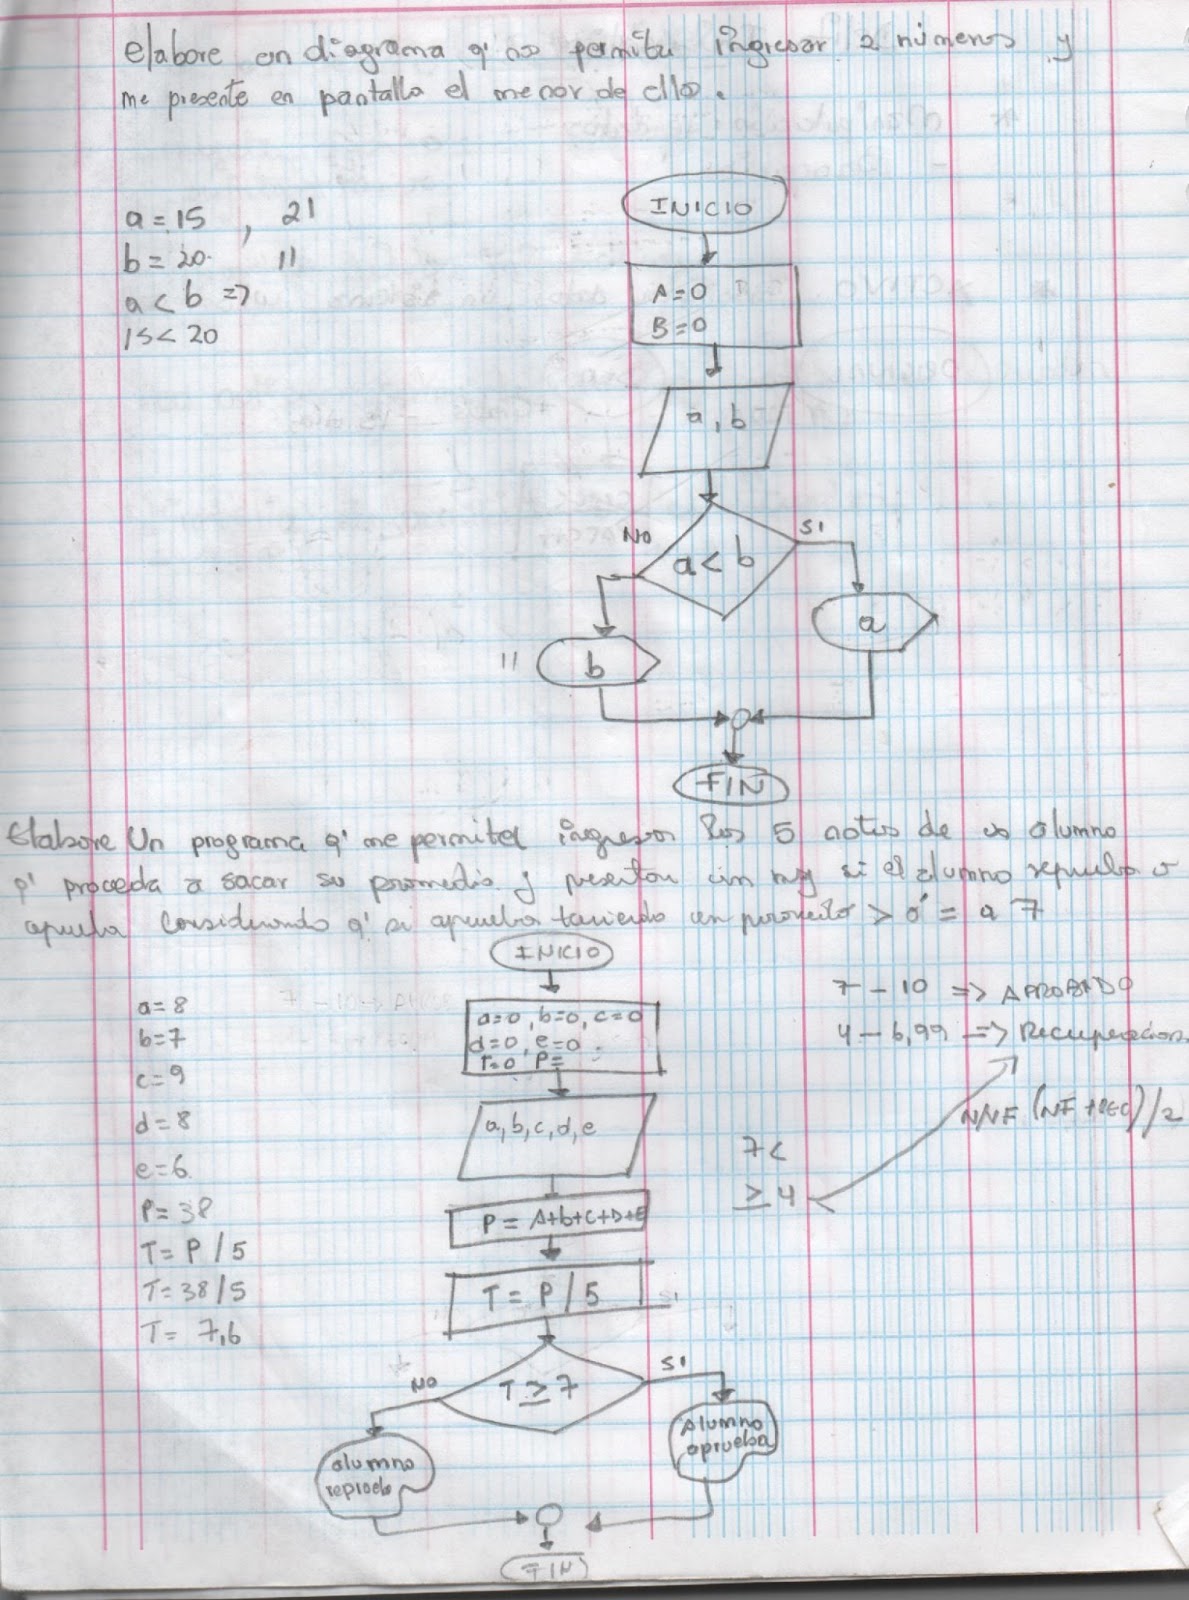 elabore un diagrama q' no permita ingresar 2 números y
me presente en pantalla el menor de ello.
a = 15 , 21
b = 20 11
a < b =>
15 < 20
INICIO
A = 0
B = 0
a, b
NO
a < b
SI
a
11
b
FIN
Elabore Un programa q' me permita ingresar los 5 notas de un alumno
q' proceda a sacar su promedio y presentar un msj si el alumno reprueba o
aprueba Considerando q' si aprueba teniendo un promedio > ó = a 7
INICIO
a = 8
b = 7
c = 9
d = 8
e = 6
P = 38
T = P / 5
T = 38 / 5
T = 7,6
a=0, b=0, c=0
d=0, e=0
T=0 P=
a, b, c, d, e
P = A+b+c+D+E
T = P / 5
NO
T ≥ 7
SI
alumno
reprueba
Alumno
aprueba
FIN
7 – 10 => APROBADO
4 – 6,99 => Recuperacion
NNF (NF + REC) / 2
7 <
≥ 4